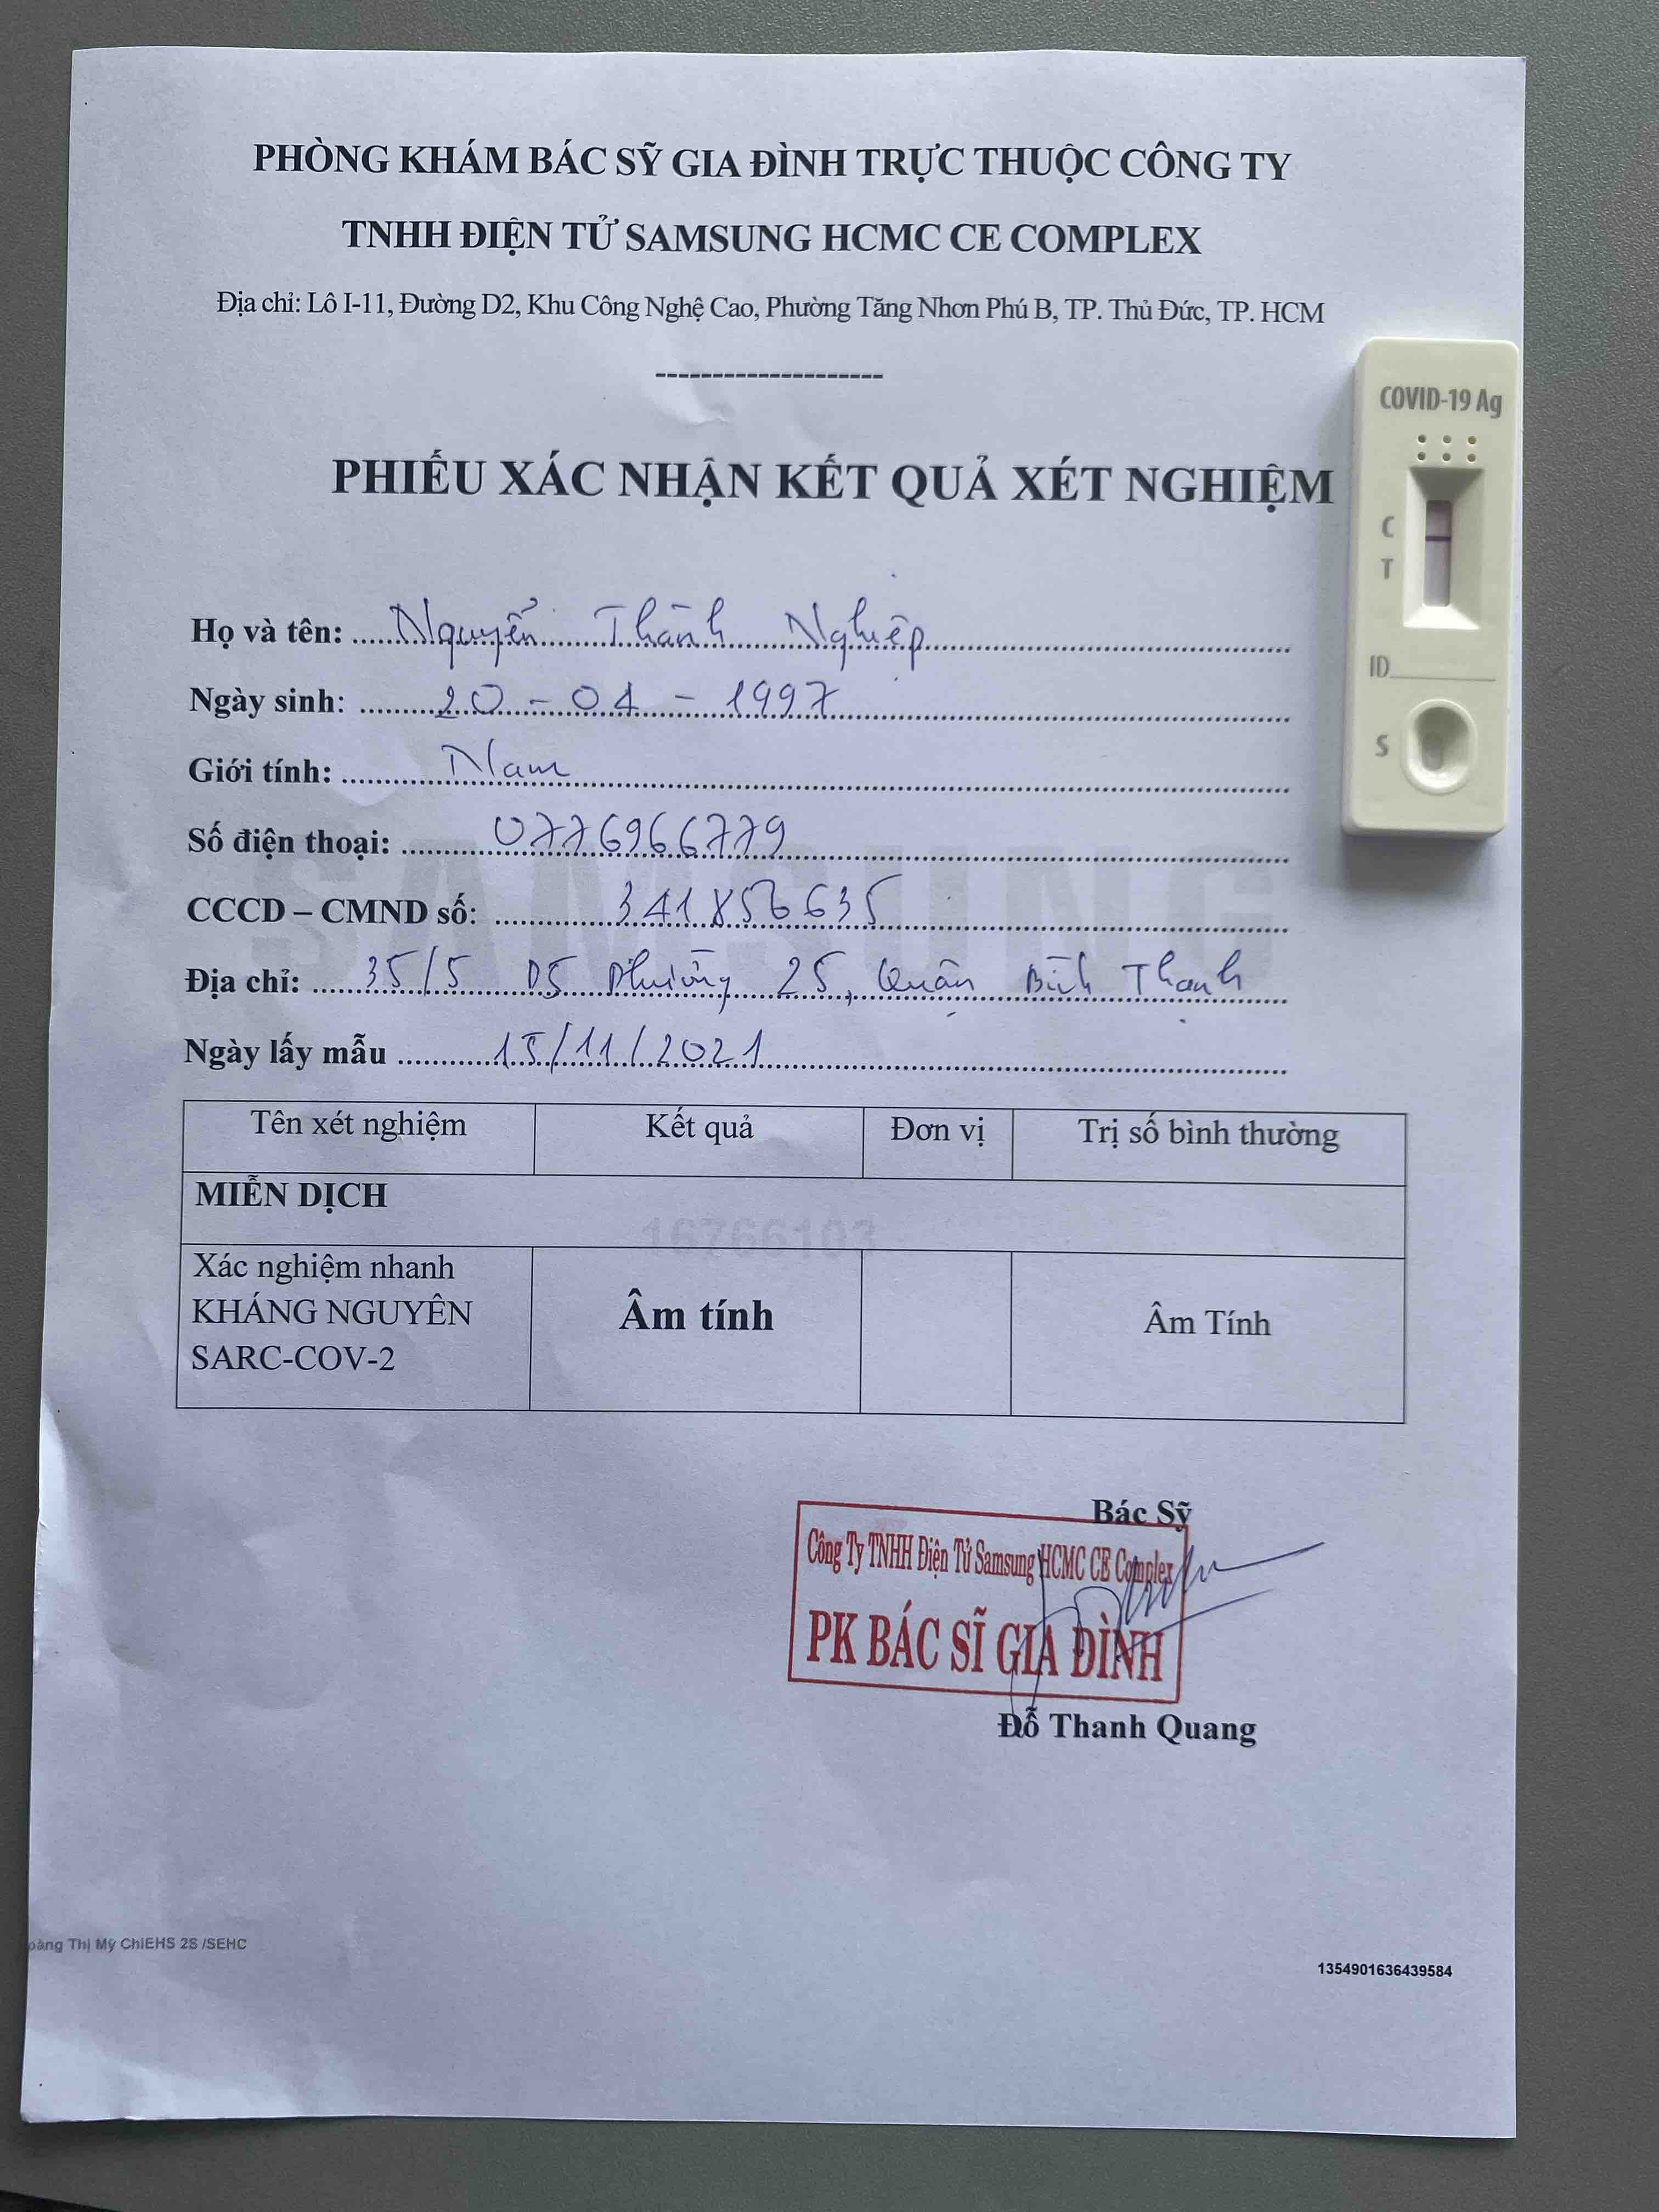 PHÒNG KHÁM BÁC SỸ GIA ĐÌNH TRỰC THUỘC CÔNG TY
TNHH ĐIỆN TỬ SAMSUNG HCMC CE COMPLEX
Địa chỉ: Lô I-11, Đường D2, Khu Công Nghệ Cao, Phường Tăng Nhơn Phú B, TP. Thủ Đức, TP. HCM
--------------------
COVID-19 Ag
C
T
ID
S
PHIẾU XÁC NHẬN KẾT QUẢ XÉT NGHIỆM
Họ và tên: Nguyễn Thành Nghiệp
Ngày sinh: 20 - 04 - 1997
Giới tính: Nam
Số điện thoại: 0776966779
CCCD – CMND số: 341856635
Địa chỉ: 35/5 D5 Phường 25, Quận Bình Thạnh
Ngày lấy mẫu 15/11/2021
SAMSUNG
Tên xét nghiệm Kết quả Đơn vị Trị số bình thường
MIỄN DỊCH
16766103
Xác nghiệm nhanh
KHÁNG NGUYÊN
SARC-COV-2
Âm tính
Âm Tính
Bác Sỹ
Công Ty TNHH Điện Tử Samsung HCMC CE Complex
PK BÁC SĨ GIA ĐÌNH
Đỗ Thanh Quang
oàng Thị Mỹ Chi EHS 2S /SEHC
1354901636439584